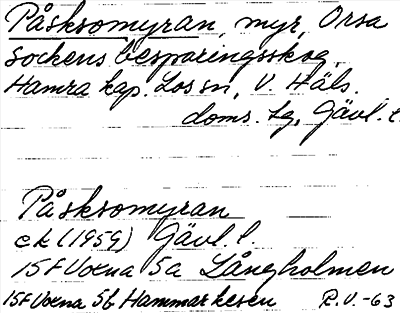 Påsksomyran, myr, Orsa
sockens besparingsskog,
Hamra kap. Los sn, V. Häls.
doms. sg, Gävl. l.
Påsksomyran
ek (1959) Gävl. l.
15F Voxna 5a Långholmen
15F Voxna 5b Hammarkesen R.V. -63